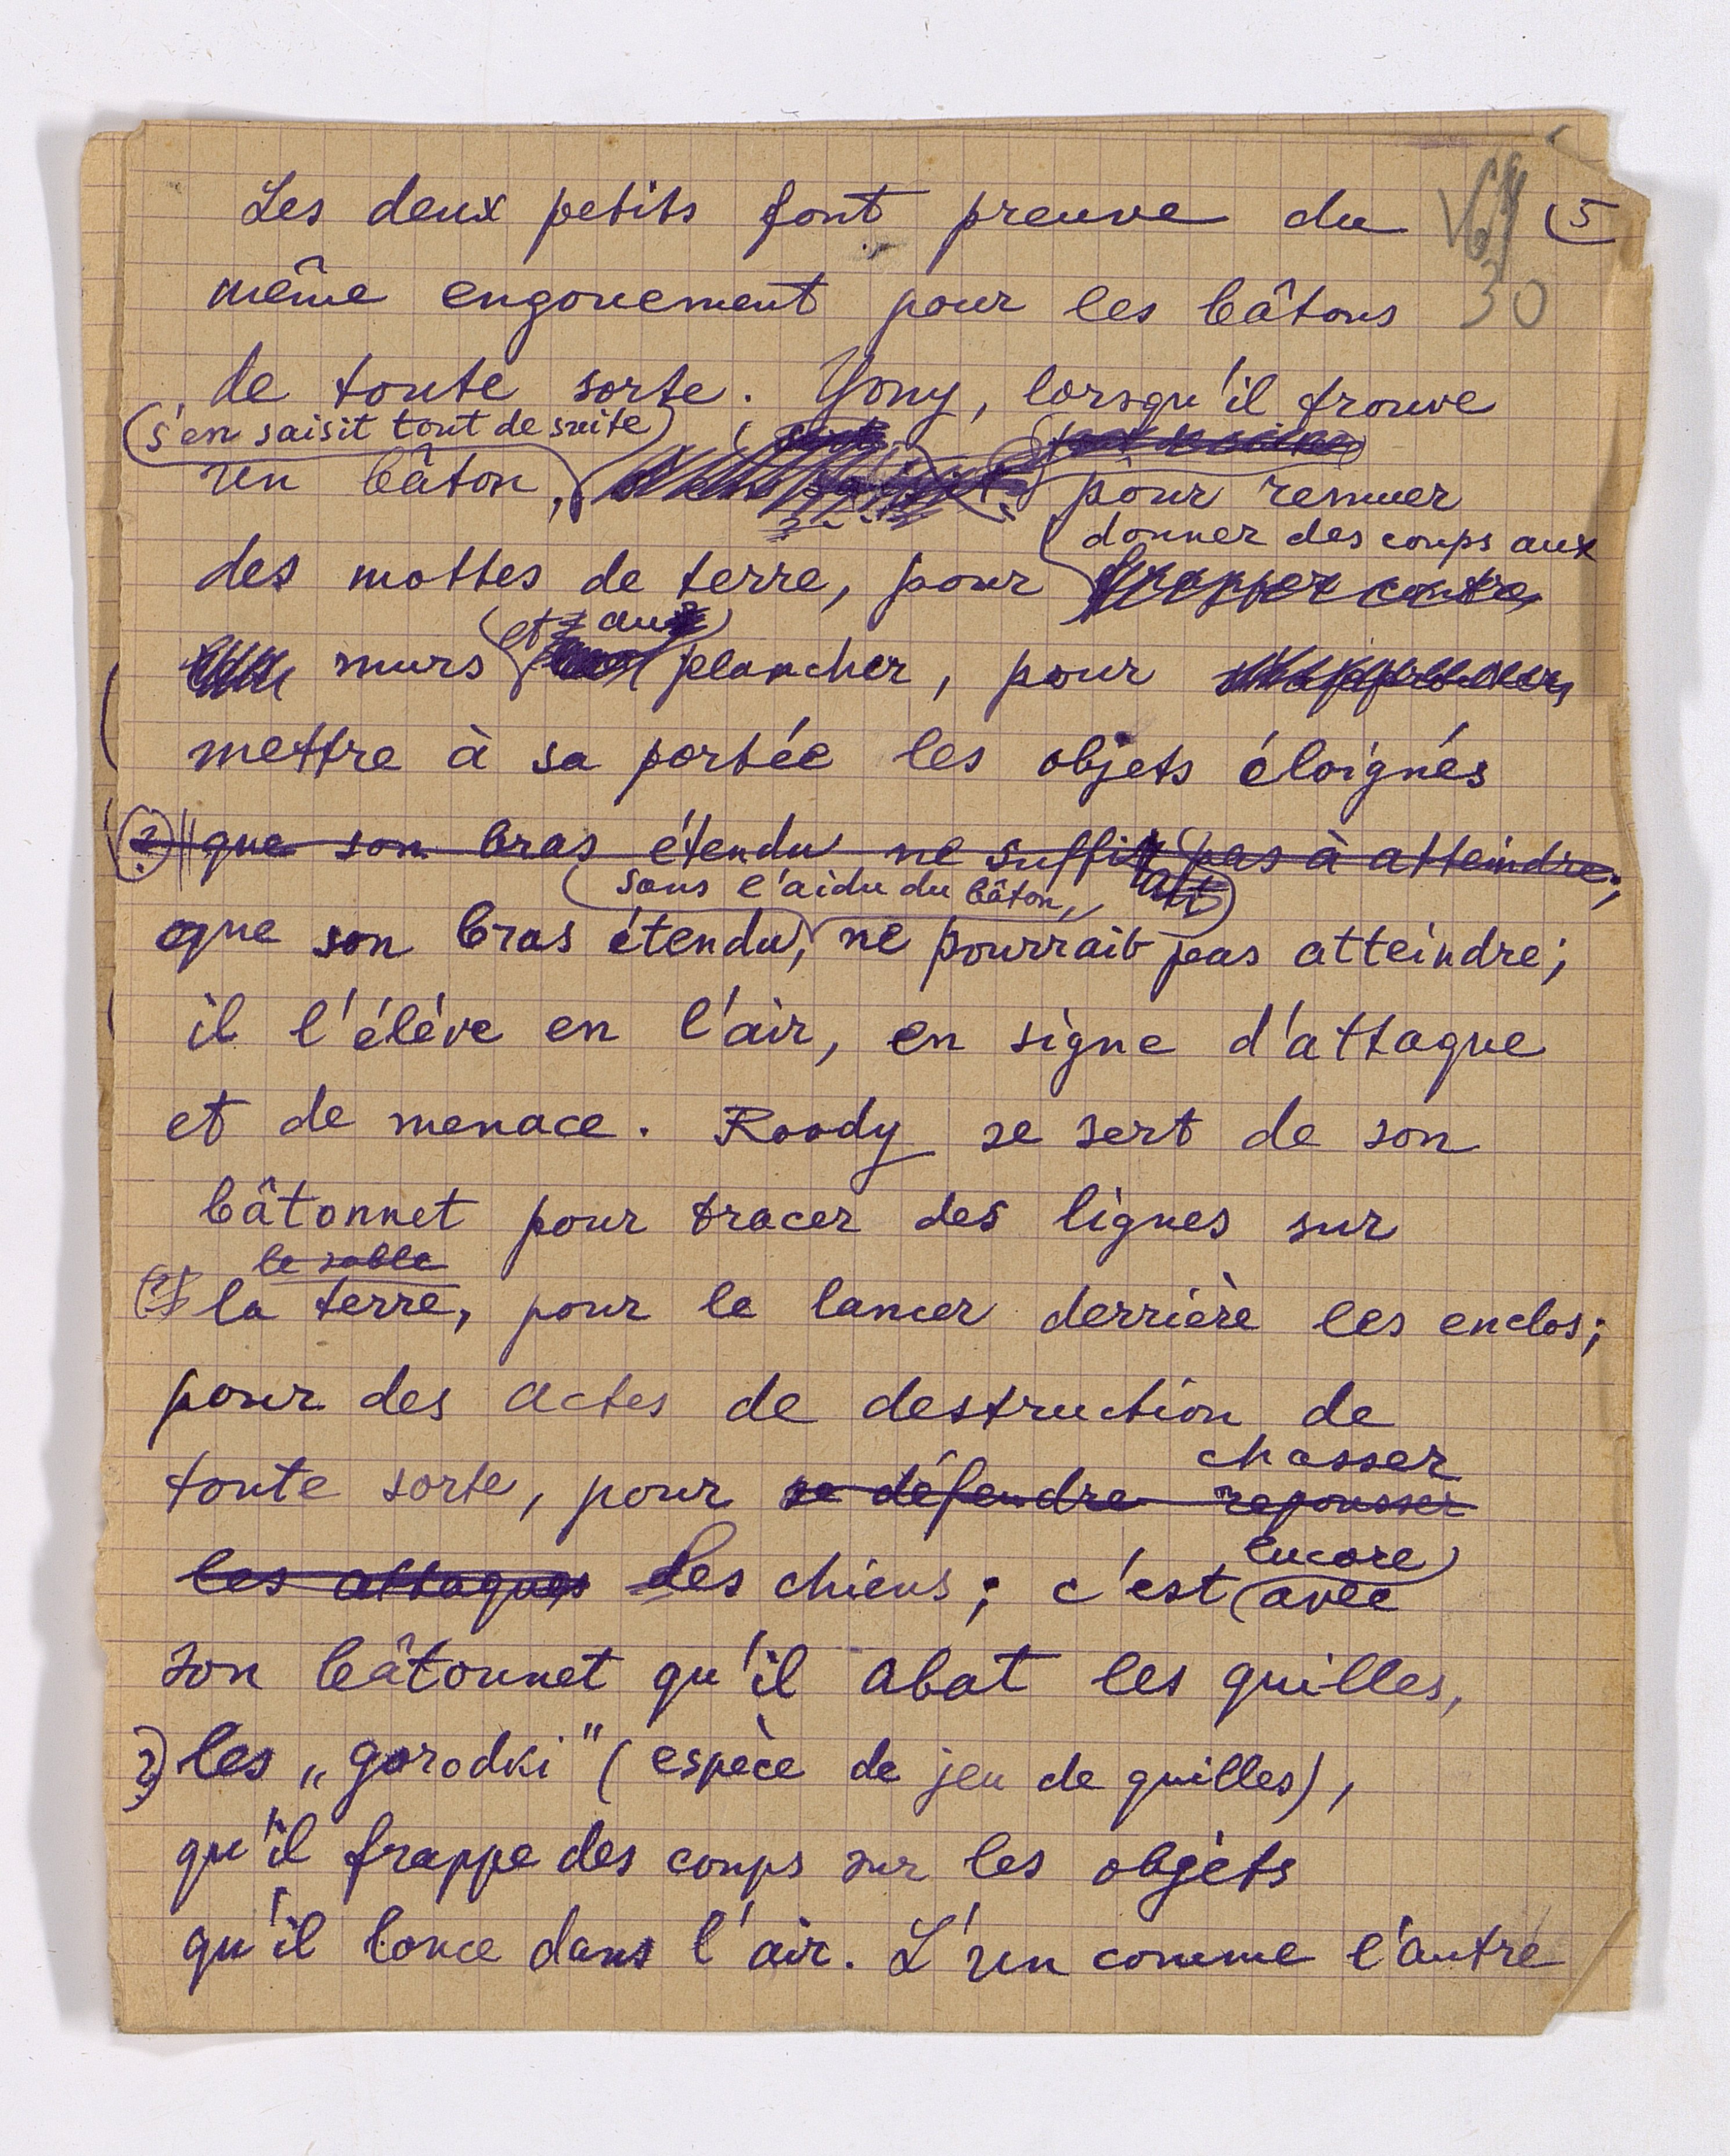 Les deux petits font preuve du
5
30
même engouement pour les bâtons
de toute sorte. Yony, lorsqu'il trouve
s'en saisit tout de suite
un bâton, pour remuer
donner des coups aux
des mottes de terre, pour frapper contre
et au
murs plancher, pour
mettre à sa portée les objets éloignés
? que son bras étendu ne suffit pas à atteindre;
sans l'aide du bâton,
que son bras étendu, ne pourrait pas atteindre;
il l'élève en l'air, en signe d'attaque
et de menace. Roody se sert de son
bâtonnet pour tracer des lignes sur
le sable
la terre, pour le lancer derrière les enclos;
pour des actes de destruction de
chasser
toute sorte, pour se défendre repousser
encore
les attaques des chiens; c'est avec
son bâtonnet qu'il abat les quilles,
? les „gorodki" (espèce de jeu de quilles),
qu'il frappe des coups sur les objets
qu'il lance dans l'air. L'un comme l'autre